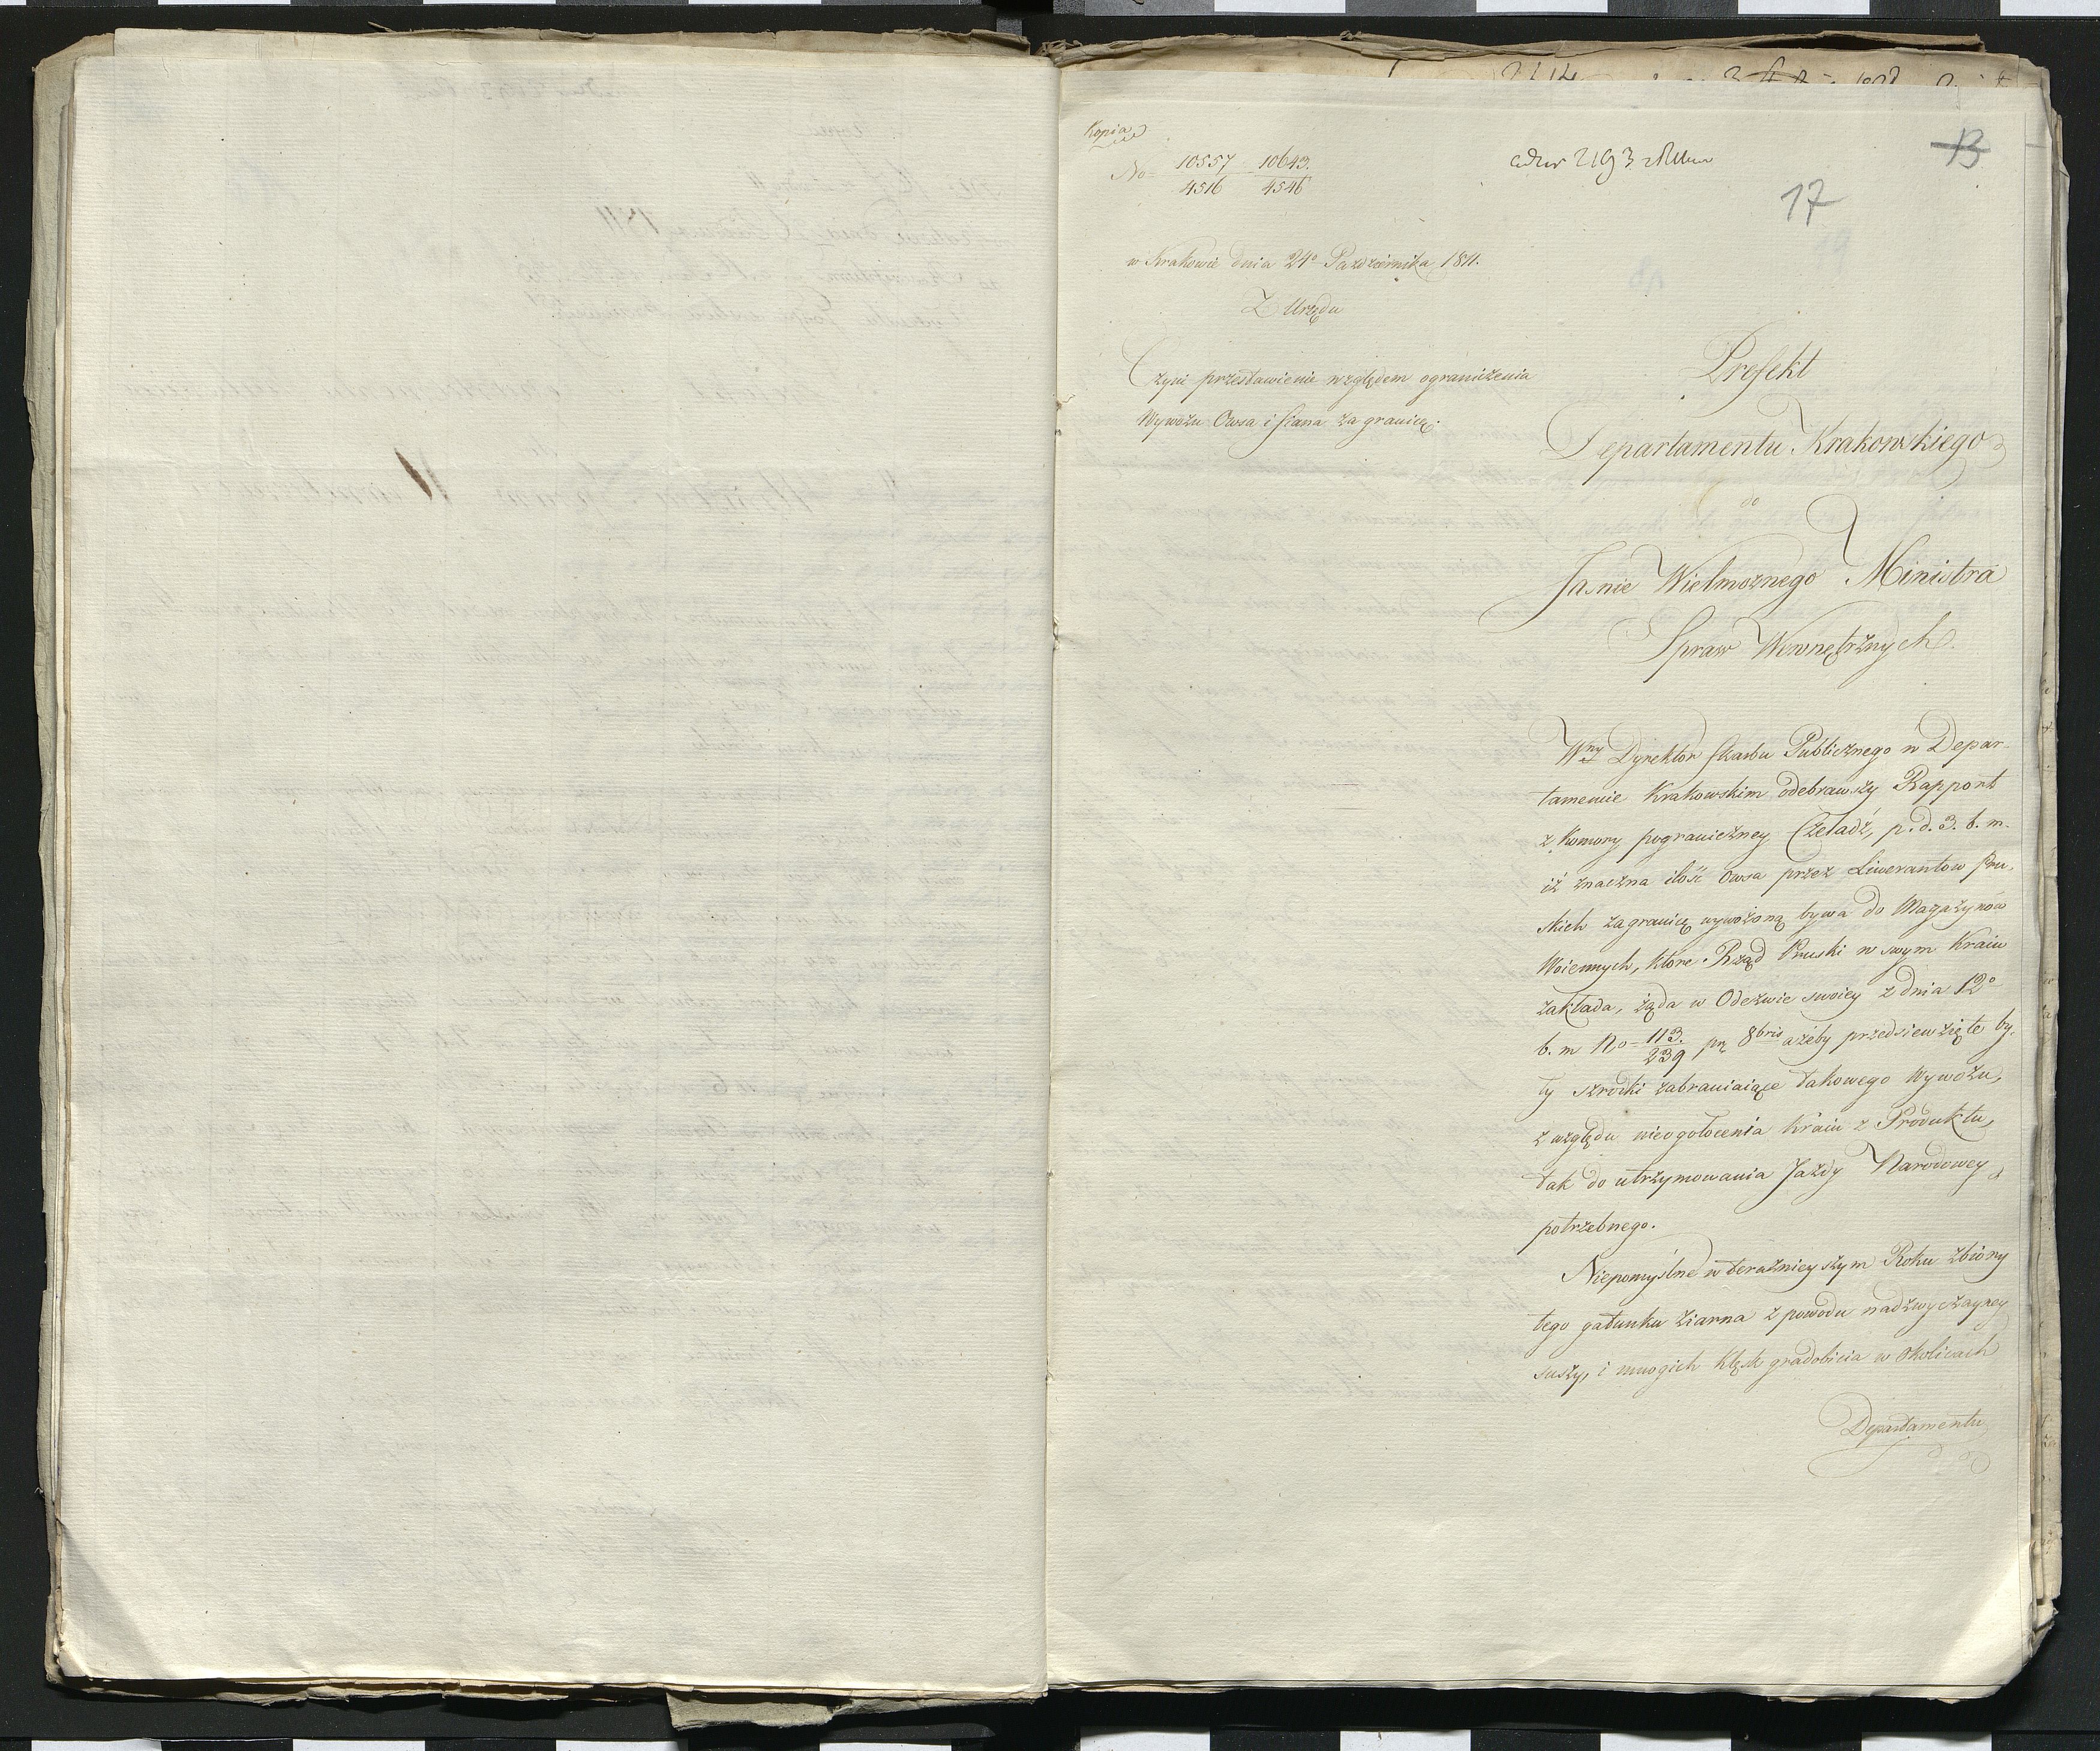 Kopia
No 10557 10643.
4516 4546
ad N 2193
13
17
w Krakowie dnia 24o Pazdziernika 1811.
Z Urzędu
Czyni przestawienie względem ograniczenia
Wywozu Owsa i siana za granicę.
Prefekt
Departamentu Krakowskiego
do
Jasnie Wielmoznego Ministra
Spraw Wewnętrznych.
Wny Dyrektor skarbu Publicznego w Depar-
tamencie Krakowskim odebrawszy Rapport
z Komory pograniczney Czeladź, p. d. 3. b. m.
iż znaczna ilość Owsa przez Liwerantow Pru-
skich zagranicę wywożoną bywa do Magazynow
Woiennych, ktore Rząd Pruski w swym Kraiu
zakłada, żąda w Odezwie swoiey z dnia 12o
b. m No 113. pr 8bris ażeby przedsiewzięte by-
239
ły szrodki zabraniaiące takowego Wywozu,
z względu nieogołocenia Kraiu z Produktu,
tak do utrzymowania Jazdy Narodowey
potrzebnego.
Niepomyślne w teraźnieyszym Roku zbiory
tego gatunku ziarna z powodu nadzwyczayney
suszy, i mnogich klęsk gradobicia w okolicach
Departamentu